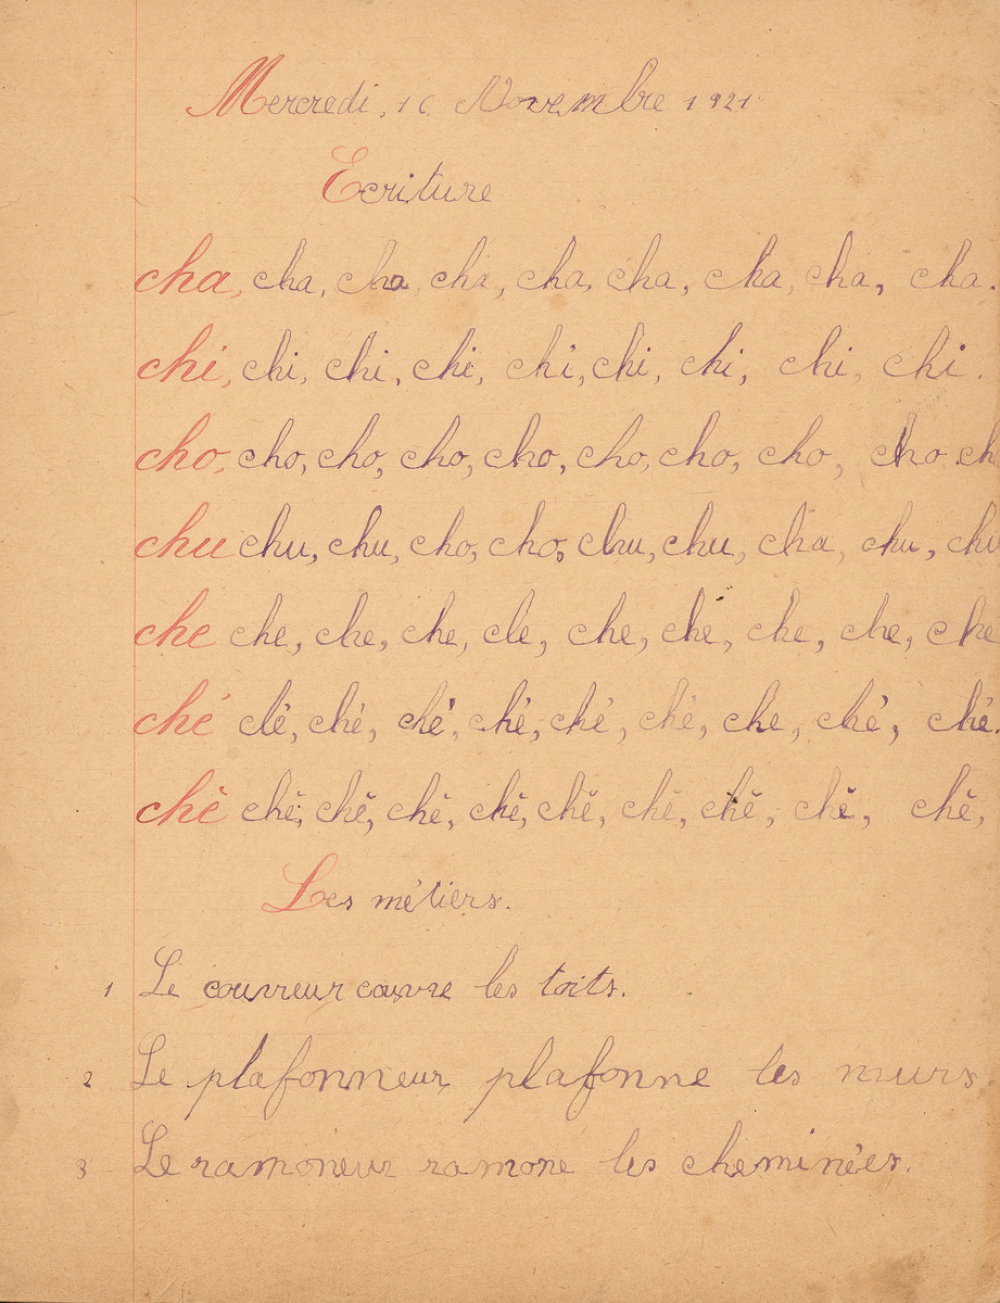 Mercredi, 16 Novembre 1921
Ecriture
cha, cha, cha, cha, cha, cha, cha, cha, cha.
chi, chi, chi, chi, chi, chi, chi, chi, chi.
cho, cho, cho, cho, cho, cho, cho, cho, cho ch
chu chu, chu, cho, cho, chu, chu, cha, chu, chu
che che, che, che, cle, che, che, che, che, che
ché clé, ché, ché, ché, ché, ché, che, ché, ché.
chê chê, chê, chê, chê, chê, chê, chê, chê, chê,
Les métiers.
1 Le couvreur couvre les toits.
2 Le plafonneur plafonne les murs
3 Le ramoneur ramone les cheminées.